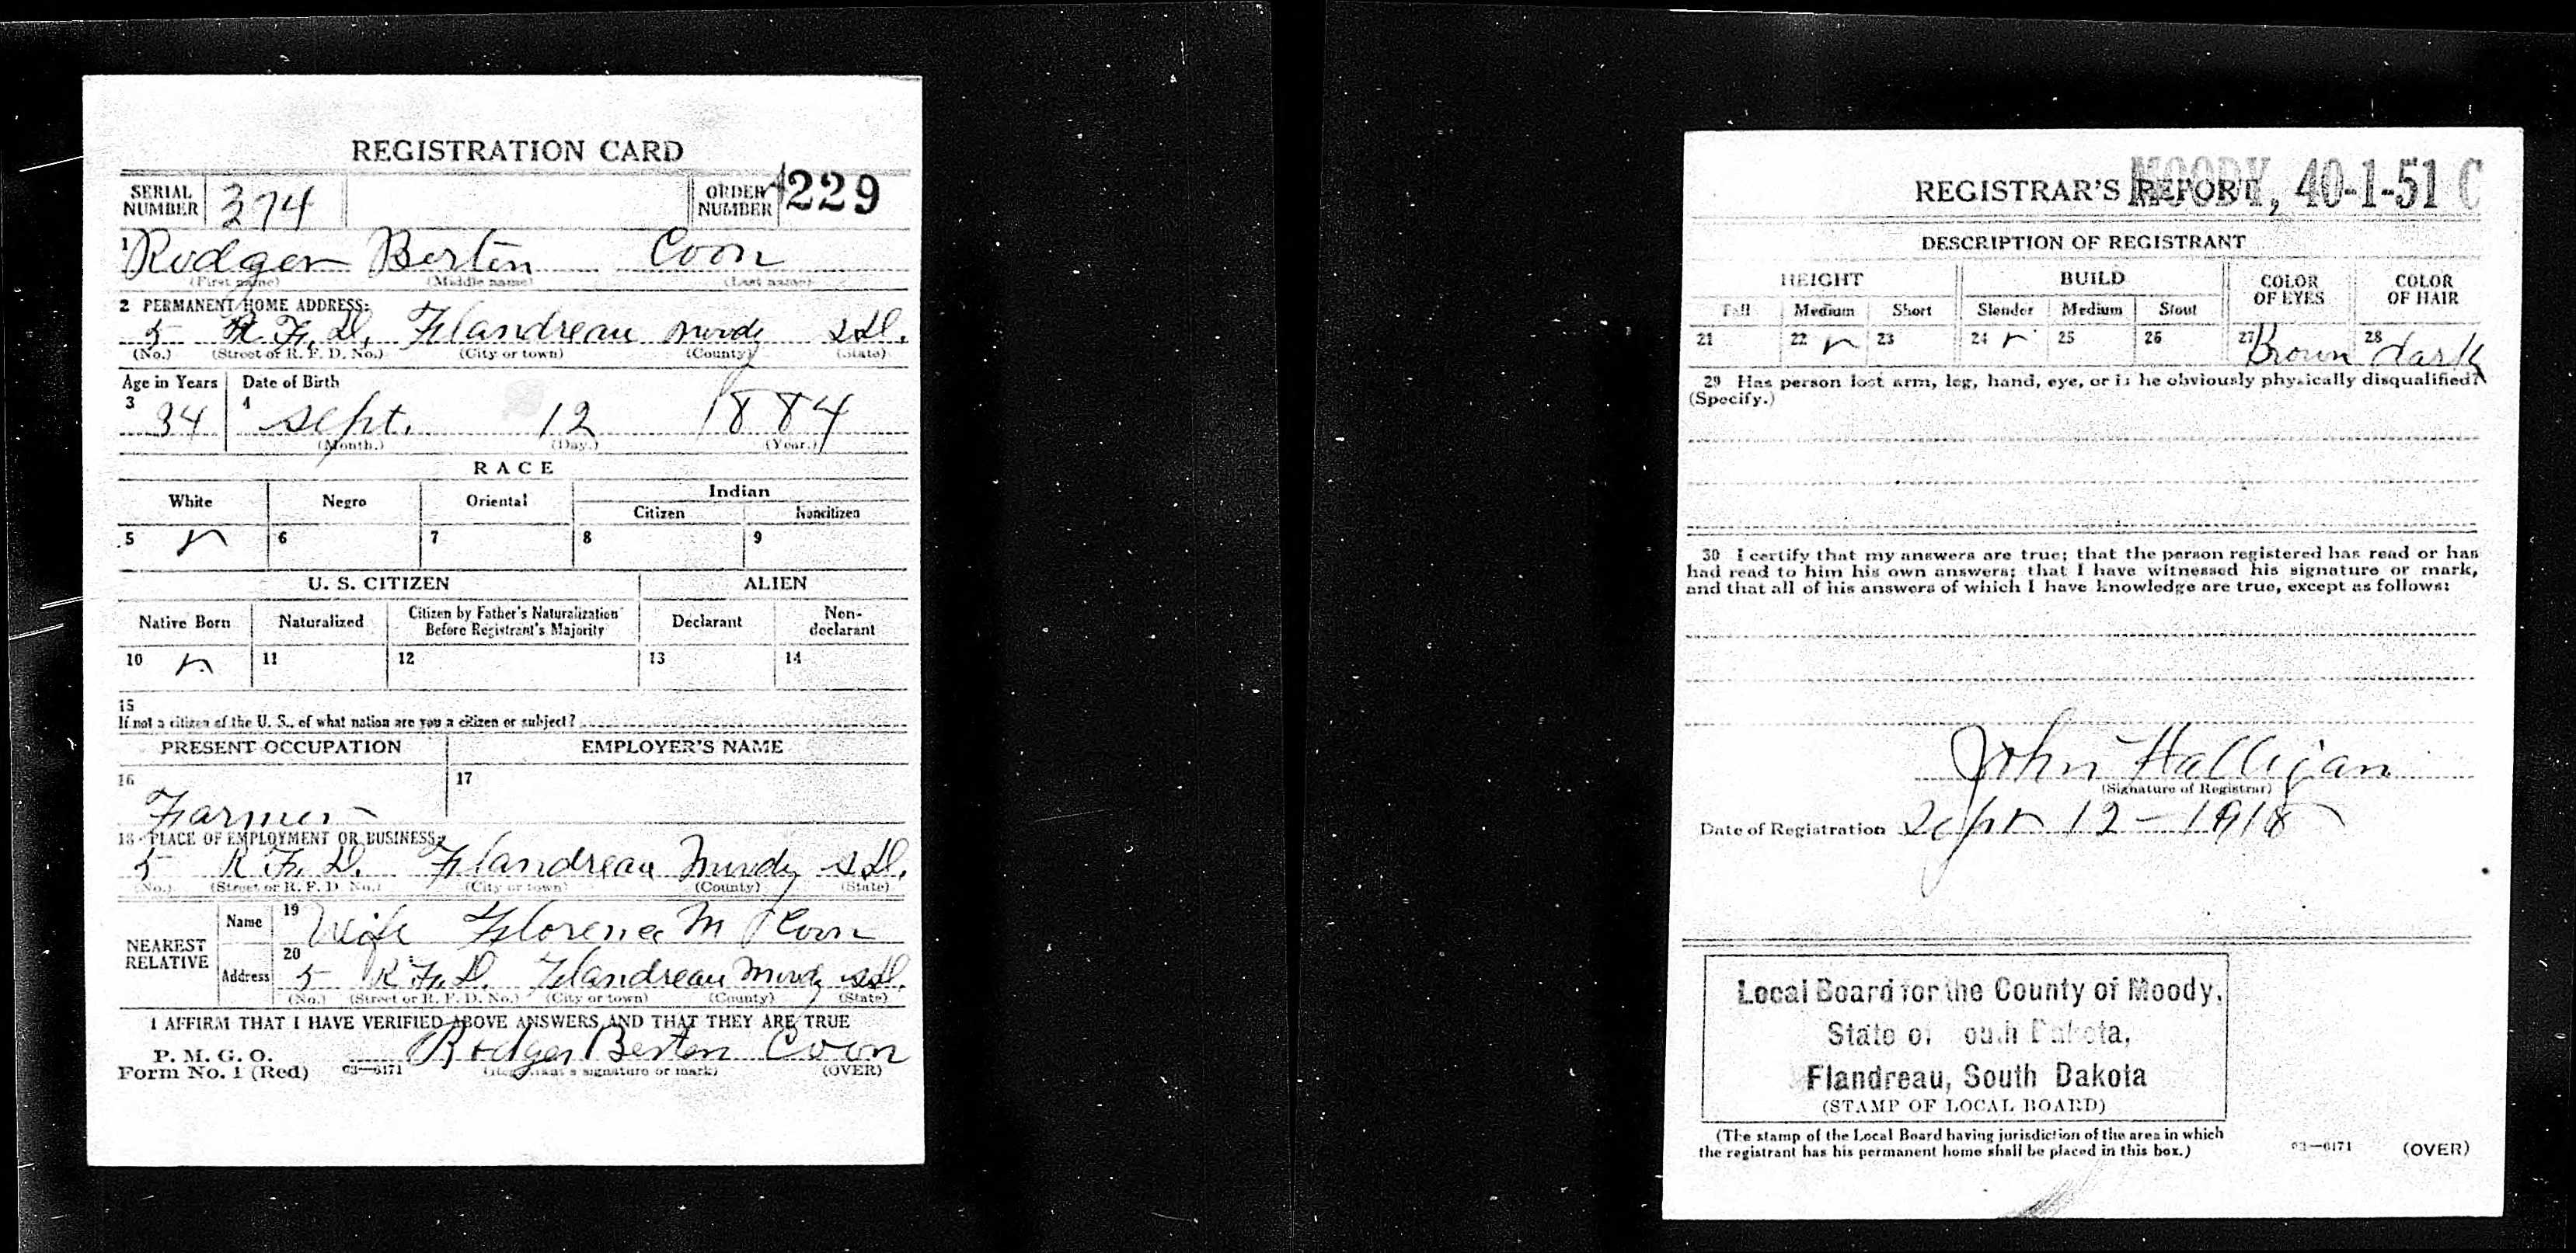 REGISTRATION CARD
SERIAL NUMBER 374 ORDER NUMBER 229
1 Rodger Berten Coon
(First name) (Middle name) (Last name)
2 PERMANENT HOME ADDRESS:
5 R.F.D. Flandreau Moody S.D.
(No.) (Street or R. F. D. No.) (City or town) (County) (State)
Age in Years Date of Birth
3 34 4 Sept. 12 1884
(Month.) (Day.) (Year.)
RACE
White Negro Oriental Indian
Citizen Noncitizen
5 6 7 8 9
U. S. CITIZEN ALIEN
Native Born Naturalized Citizen by Father's Naturalization Before Registrant's Majority Declarant Non-declarant
10 11 12 13 14
15
If not a citizen of the U. S., of what nation are you a citizen or subject?
PRESENT OCCUPATION EMPLOYER'S NAME
16 17
Farmer
18 PLACE OF EMPLOYMENT OR BUSINESS:
5 R.F.D. Flandreau Moody S.D.
(No.) (Street or R. F. D. No.) (City or town) (County) (State)
NEAREST RELATIVE
Name 19 Wife Florence M Coon
Address 20 5 R.F.D. Flandreau Moody S.D.
(No.) (Street or R. F. D. No.) (City or town) (County) (State)
I AFFIRM THAT I HAVE VERIFIED ABOVE ANSWERS AND THAT THEY ARE TRUE
P. M. G. O.
Form No. 1 (Red) 03—6171 Rodger Berten Coon
(Registrant's signature or mark) (OVER)
REGISTRAR'S REPORT MOODY, 40-1-51 C
DESCRIPTION OF REGISTRANT
HEIGHT BUILD COLOR OF EYES COLOR OF HAIR
Tall Medium Short Slender Medium Stout
21 22 23 24 25 26 27 Brown 28 dark
29 Has person lost arm, leg, hand, eye, or is he obviously physically disqualified?
(Specify.)
30 I certify that my answers are true; that the person registered has read or has
had read to him his own answers; that I have witnessed his signature or mark,
and that all of his answers of which I have knowledge are true, except as follows:
John Halligan
(Signature of Registrar)
Date of Registration Sept 12 - 1918
Local Board for the County of Moody,
State of South Dakota,
Flandreau, South Dakota
(STAMP OF LOCAL BOARD)
(The stamp of the Local Board having jurisdiction of the area in which
the registrant has his permanent home shall be placed in this box.)
03—6171 (OVER)